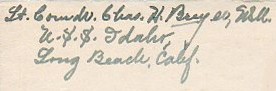 Lt. Comdr. Chas. H.
U.S.S. Idaho,
Long Beach, Calif.